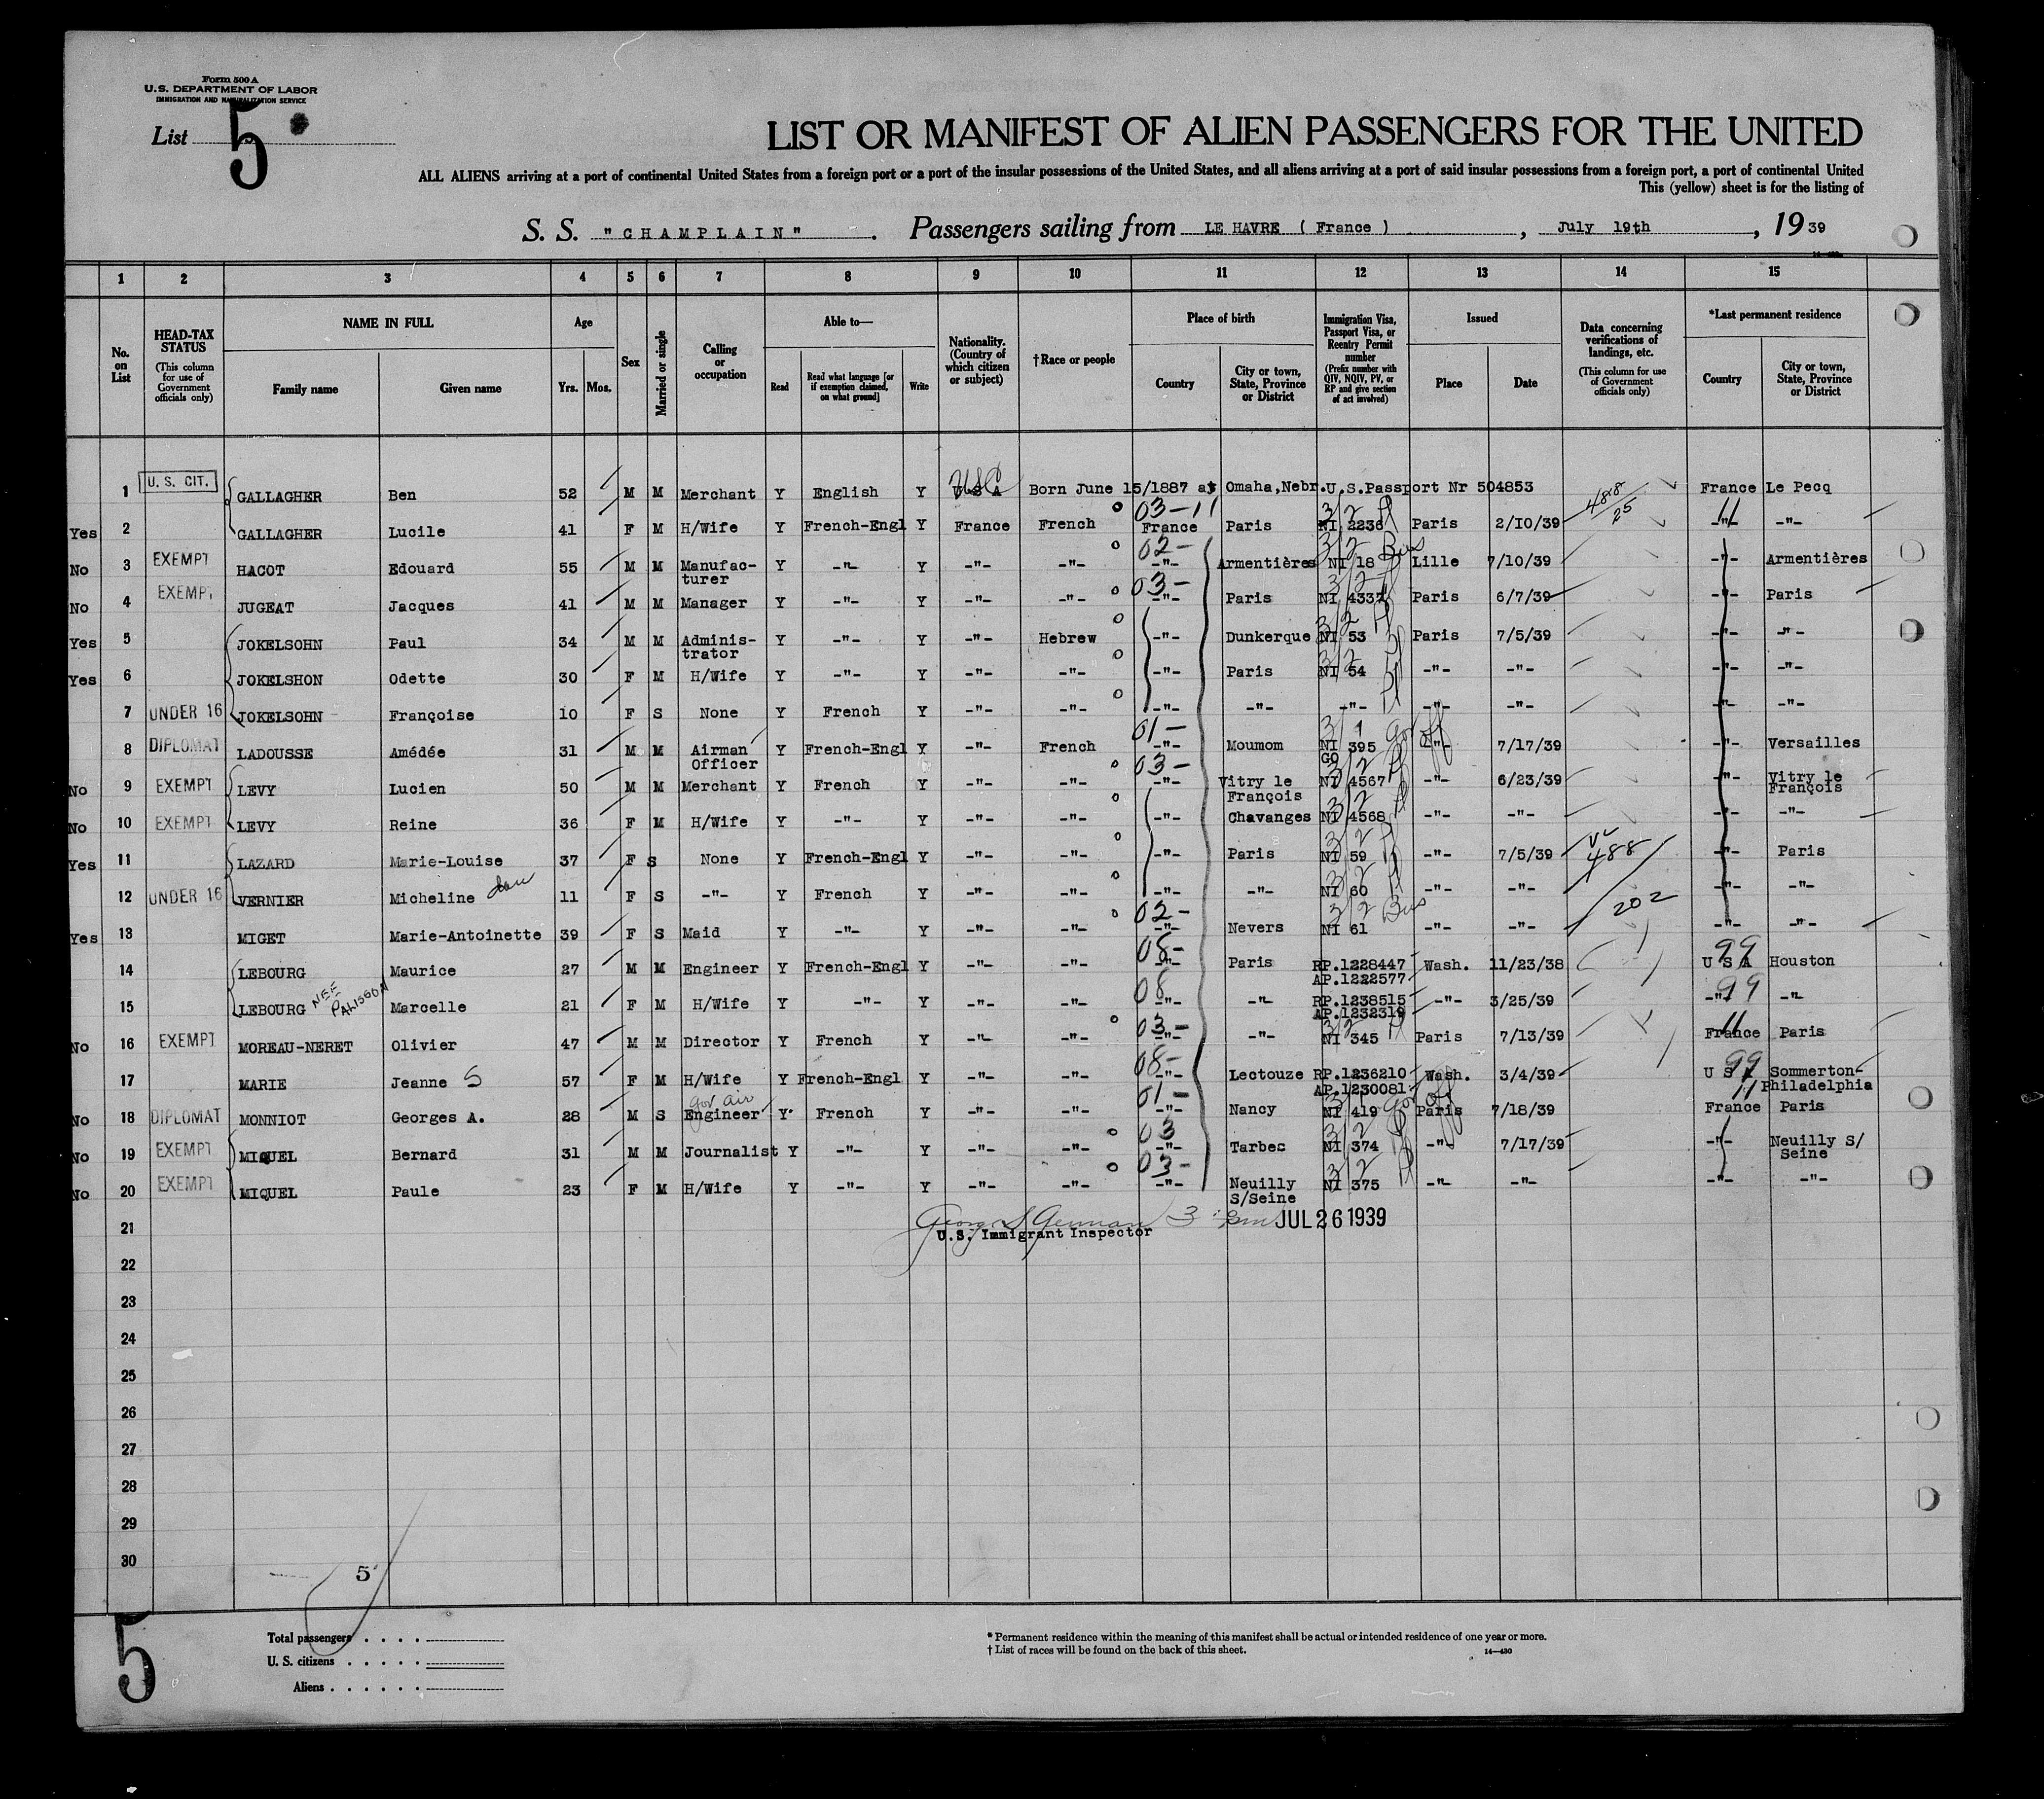 Form 500 A
U.S. DEPARTMENT OF LABOR
IMMIGRATION AND NATURALIZATION SERVICE
List 5
LIST OR MANIFEST OF ALIEN PASSENGERS FOR THE UNITED
ALL ALIENS arriving at a port of continental United States from a foreign port or a port of the insular possessions of the United States, and all aliens arriving at a port of said insular possessions from a foreign port, a port of continental United
This (yellow) sheet is for the listing of
S. S. "CHAMPLAIN". Passengers sailing from LE HAVRE ( France ), July 19th, 19 39
1 2 3 4 5 6 7 8 9 10 11 12 13 14 15
No. on List
HEAD-TAX STATUS (This column for use of Government officials only)
NAME IN FULL Family name Given name
Age Yrs. Mos.
Sex
Married or single
Calling or occupation
Able to— Read Read what language [or if exemption claimed, on what ground] Write
Nationality. (Country of which citizen or subject)
†Race or people
Place of birth Country City or town, State, Province or District
Immigration Visa, Passport Visa, or Reentry Permit number (Prefix number with QIV, NQIV, PV, or RP and give section of act involved)
Issued Place Date
Data concerning verifications of landings, etc. (This column for use of Government officials only)
*Last permanent residence Country City or town, State, Province or District
1 U. S. CIT. GALLAGHER Ben 52 M M Merchant Y English Y U S A USC Born June 15/1887 at Omaha,Nebr. U.S.Passport Nr 504853 France Le Pecq
Yes 2 GALLAGHER Lucile 41 F M H/Wife Y French-Engl Y France French 03-11 France Paris 3/2 NI 2236 Paris 2/10/39 488/25 11 -"- -"-
No 3 EXEMPT HACOT Edouard 55 M M Manufac-turer Y -"- Y -"- -"- 02- -"- Armentières 3/2 Bus NI 18 Lille 7/10/39 -"- Armentières
No 4 EXEMPT JUGEAT Jacques 41 M M Manager Y -"- Y -"- -"- 03- -"- Paris 3/2 NI 4337 Paris 6/7/39 -"- Paris
Yes 5 JOKELSOHN Paul 34 M M Adminis-trator Y -"- Y -"- Hebrew -"- Dunkerque 3/2 NI 53 Paris 7/5/39 -"- -"-
Yes 6 JOKELSHON Odette 30 F M H/Wife Y -"- Y -"- -"- -"- Paris 3/2 NI 54 -"- -"- -"- -"-
7 UNDER 16 JOKELSOHN Françoise 10 F S None Y French Y -"- -"- -"- -"- -"- -"- -"- -"- -"-
8 DIPLOMAT LADOUSSE Amédée 31 M M Airman Officer Y French-Engl Y -"- French 01- -"- Moumom 3/1 Gov off NI 395 GO -"- 7/17/39 -"- Versailles
No 9 EXEMPT LEVY Lucien 50 M M Merchant Y French Y -"- -"- 03- -"- Vitry le François 3/2 NI 4567 -"- 6/23/39 -"- Vitry le François
No 10 EXEMPT LEVY Reine 36 F M H/Wife Y -"- Y -"- -"- -"- Chavanges 3/2 NI 4568 -"- -"- -"- -"-
Yes 11 LAZARD Marie-Louise 37 F S None Y French-Engl Y -"- -"- -"- Paris 3/2 NI 59 -"- 7/5/39 488 -"- Paris
12 UNDER 16 VERNIER Micheline dau 11 F S -"- Y French Y -"- -"- -"- -"- 3/2 NI 60 -"- -"- 202 -"- -"-
Yes 13 MIGET Marie-Antoinette 39 F S Maid Y -"- Y -"- -"- 02- -"- Nevers 3/2 Bus NI 61 -"- -"- -"- -"-
14 LEBOURG Maurice 27 M M Engineer Y French-Engl Y -"- -"- 08- -"- Paris RP.1228447 AP.1222577 Wash. 11/23/38 99 U S A Houston
15 LEBOURG NEE Marcelle 21 F M H/Wife Y -"- Y -"- -"- 08 -"- -"- RP.1238515 AP.1232319 -"- 3/25/39 99 -"- -"-
No 16 EXEMPT MOREAU-NERET Olivier 47 M M Director Y French Y -"- -"- 03- -"- -"- 3/2 NI 345 Paris 7/13/39 11 France Paris
17 MARIE Jeanne S 57 F M H/Wife Y French-Engl Y -"- -"- 08- -"- Lectouze RP.1236210 AP.1230081 Wash. 3/4/39 99 U S A Sommerton-Philadelphia
No 18 DIPLOMAT MONNIOT Georges A. 28 M S gov air Engineer Y French Y -"- -"- 01- -"- Nancy 3/1 Gov off NI 419 Paris 7/18/39 11 France Paris
No 19 EXEMPT MIQUEL Bernard 31 M M Journalist Y -"- Y -"- -"- 03 -"- Tarbec 3/2 NI 374 -"- 7/17/39 -"- Neuilly S/Seine
No 20 EXEMPT MIQUEL Paule 23 F M H/Wife Y -"- Y -"- -"- 03- -"- Neuilly S/Seine 3/2 NI 375 -"- -"- -"- -"-
21 George S German 3 pm JUL 26 1939
U.S. Immigrant Inspector
22
23
24
25
26
27
28
29
30
5
5
Total passengers
U. S. citizens
Aliens
* Permanent residence within the meaning of this manifest shall be actual or intended residence of one year or more.
† List of races will be found on the back of this sheet.
14—430